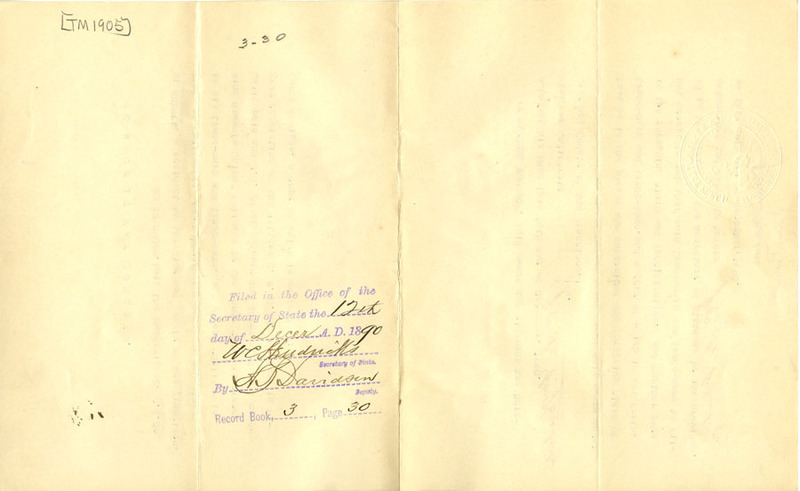 [TM1905]
3-30
Filed in the Office of the
Secretary of State the 12th
day of Decer A. D. 1890
W C Hendricks
Secretary of State.
By A J Davidson
Deputy.
Record Book, 3, Page 30